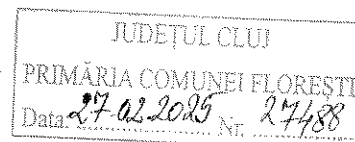 JUDEȚUL CLUJ
PRIMĂRIA COMUNEI FLOREȘTI
Data 27.02.2025 Nr. 27488